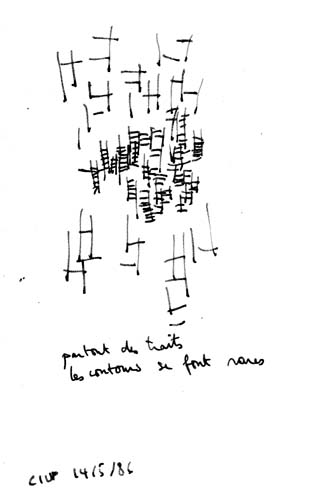 partout des traits
les contours se font rares
CIUP 14/5/86